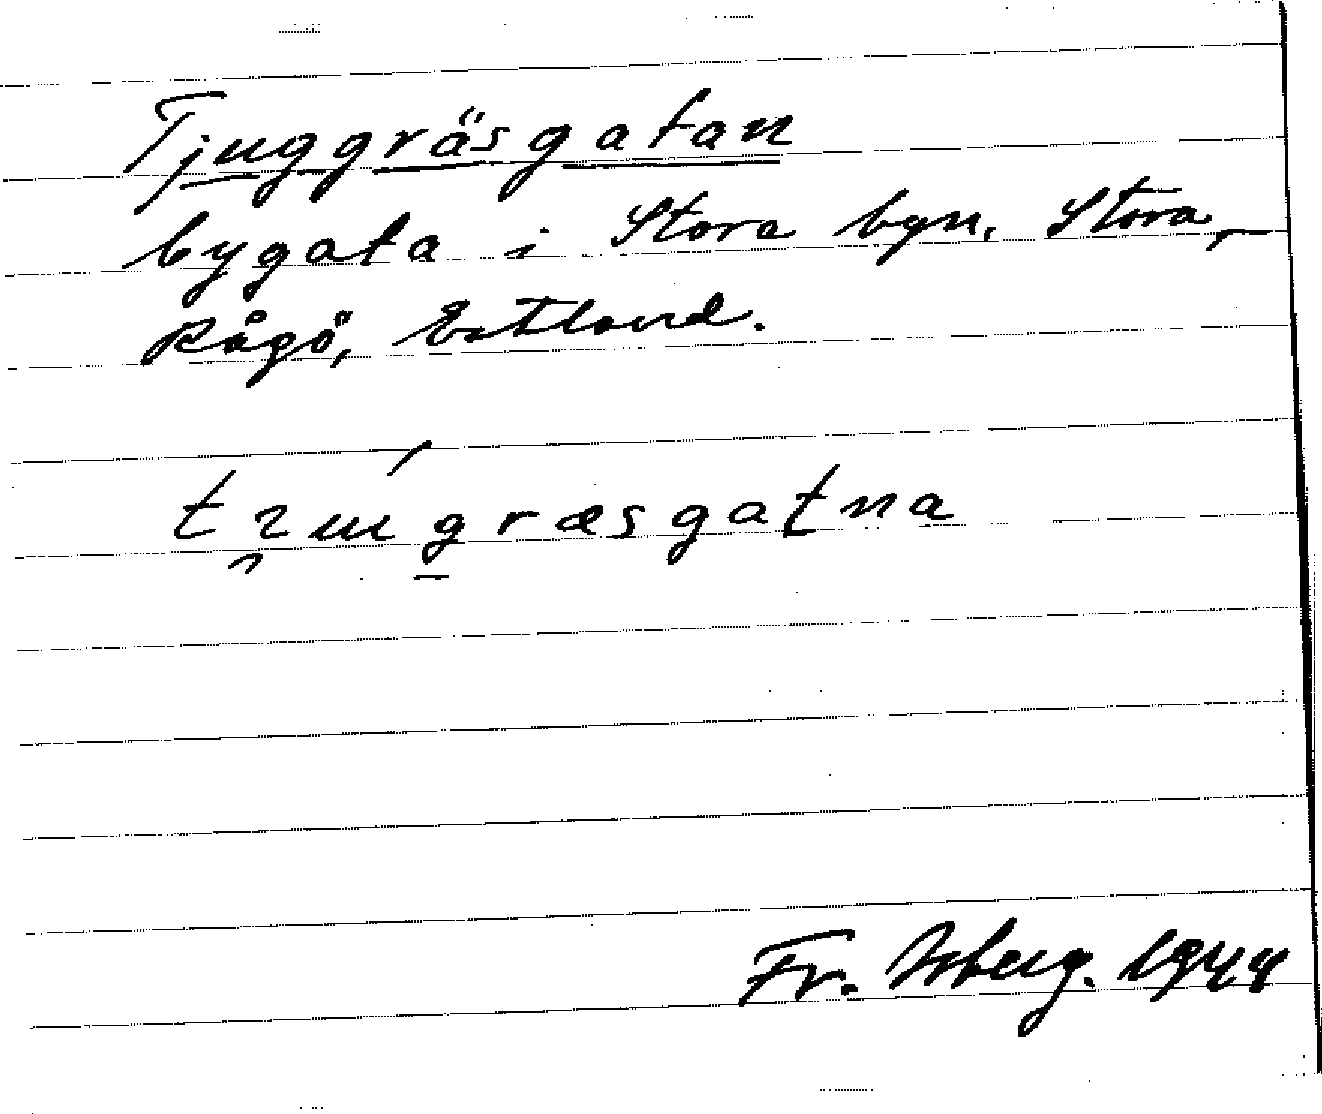 Tjuggräsgatan
bygata i Stora byn, Stora
Rågö, Estland.
Fr. Isberg. 1944